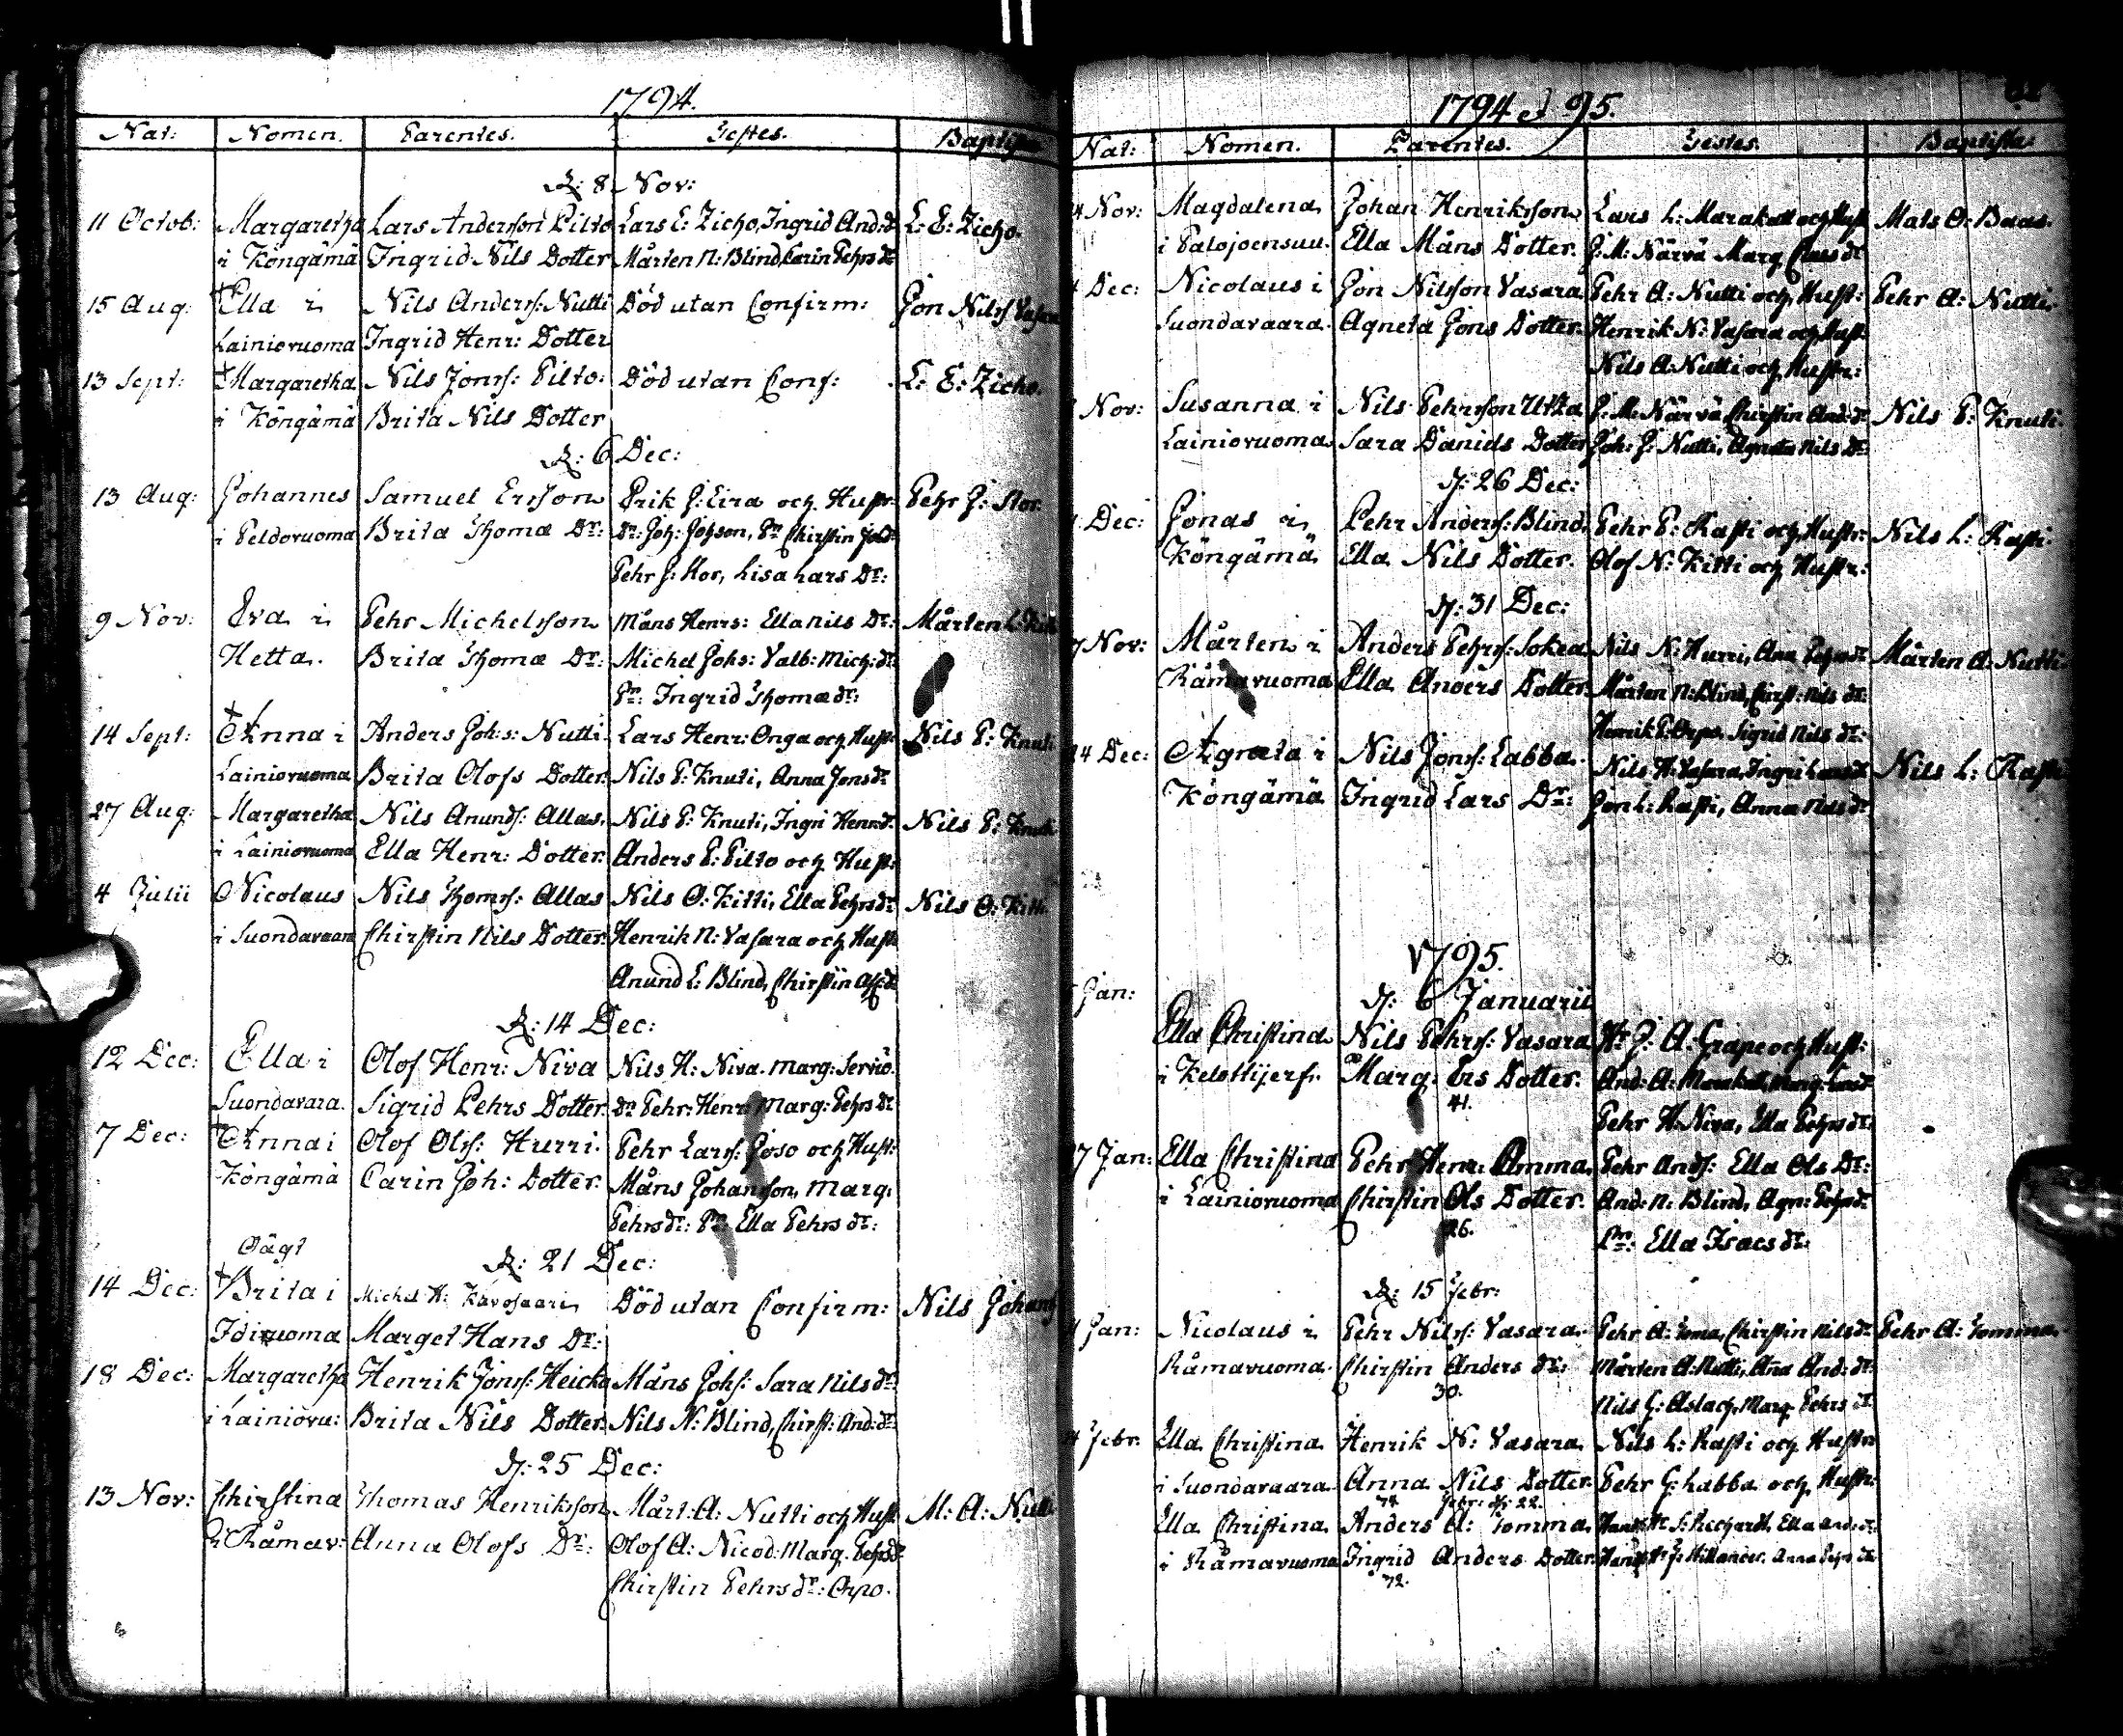 1794.
Nat: Nomen. Parentes. Testes. Baptista
D: 8 Nov:
11 Octob: Margaretha Lars Andersson Pilto Lars E: Zicho, Ingrid And: dr L: E: Zicho.
i Köngämä Ingrid Nils Dotter Mårten N: Blind, Carin Pehrs dr
15 Aug: Ella i Nils Anders: Nutti Död utan Confirm: Jon Nilss Vasara
Lainiovuoma Ingrid Henr: Dotter
13 Sept: Margaretha Nils Jonss: Pilto: Död utan Conf: L: E: Zicho.
i Köngämä Brita Nils Dotter
D: 6 Dec:
13 Aug: Johannes Samuel Ersson Erik J: Eira och Hustr: Pehr J: Stor.
i Peldovuoma Brita Thomæ Dr: Dr: Joh: Johsson, Pn Chirstin
Pehr J: Stor, Lisa Lars Dr:
9 Nov: Eva i Pehr Michelsson Måns Henrs: Ella Nils Dr: Mårten
Hetta. Brita Thomæ Dr: Michel Johs: Valb: Mich: dr
Pn: Ingrid Thomæ dr:
14 Sept: Anna i Anders Joh:s: Nutti. Lars Henr: Onga och Hust: Nils P: Knuti
Lainiovuoma Brita Olofs Dotter. Nils P: Knuti, Anna Jons dr
27 Aug: Margaretha Nils Anunds: Allas. Nils P: Knuti, Ingri Henr: dr Nils P: Knuti
i Lainiovuoma Ella Henr: Dotter. Anders P: Pilto och Hust:
4 Julii Nicolaus Nils Thoms: Allas Nils O: Kitti, Ella Pehrs dr Nils O: Kitti
i Suondavaara Chirstin Nils Dotter. Henrik N: Vasara och Hust:
Anund L: Blind, Chirstin
D: 14 Dec:
12 Dec: Ella i Olof Henr: Niva Nils H: Niva. Marg: Servio.
Suondavara. Sigrid Pehrs Dotter. Dr Pehr: Henr: Marg: Pehrs Dr
7 Dec: Anna i Olof Olss: Hurri. Pehr Larss: Joso och Hust:
Köngämä Carin Joh: Dotter. Måns Johansson, Marg:
Pehrs dr: Pn Ella Pehrs dr:
Oägt
D: 21 Dec:
14 Dec: Brita i Michel H: Kavosaari Död utan Confirm: Nils Johans
Idivuoma Marget Hans Dr:
18 Dec: Margaretha Henrik Jonss: Heicka Måns Johs: Sara Nils dr
i Lainiovu: Brita Nils Dotter. Nils N: Blind, Chirst: And: dr
D: 25 Dec:
13 Nov: Chirstina Thomas Henriksson Mårt: A: Nutti och Hust M: A: Nutti
i Råmav: Anna Olofs Dr: Olof A: Nicod: Marg. Pehrs dr
Chirstin Pehrs dr: Orpo.
1794 et 95.
Nat: Nomen. Parentes. Testes. Baptista
4 Nov: Magdalena Johan Henriksson Lars L: Marakatt och Hust Mats O: Baas.
i Palojoensuu. Ella Måns Dotter. J: M: Närvä Marg Claes dr
Dec: Nicolaus i Jon Nilsson Vasara Pehr A: Nutti och Hust: Pehr A: Nutti.
Suondavaara. Agneta Jons Dotter. Henrik N: Vasara och Hust:
Nils A: Nutti och Hustr:
Nov: Susanna i Nils Pehrsson Utka J: M: Närvä Chirstin And: dr Nils P: Knuti.
Lainiovuoma Sara Daniels Dotter Joh: J: Nutti, Agneta Nils Dr:
D: 26 Dec:
Dec: Jonas i Pehr Anders: Blind. Pehr P: Rasti och Hustr: Nils L: Rasti.
Köngämä Ella Nils Dotter. Olof N: Kitti och Hustr:
D: 31 Dec:
7 Nov: Mårten i Anders Pehrs: Sokea Nils N: Hurri, Ana Pehrs dr Mårten A: Nutti
Råmavuoma Ella Anders Dotter. Mårten N: Blind, Chirst: Nils dr:
Henrik P: Orpo. Sigrid Nils dr:
24 Dec: Agneta i Nils Jonss: Labba. Nils H: Vasara, Ingri Lars dr Nils L: Rasti
Köngämä Ingrid Lars Dr: Jon L: Rasti, Anna Nils dr
1795.
Jan: D: 6 Januarii
Ella Christina Nils Pehrs: Vasara Hr J: A: Grape och Hust:
i Kelottijerfi Marg: Ers Dotter. And: A:
41.
Pehr H: Niva, Ella Pehrs dr:
27 Jan: Ella Christina Pehr Henr: Omma. Pehr Ands: Ella Ols Dr:
i Lainiovuoma Chirstin Ols Dotter. And: N: Blind, Agn: Pehrs dr
26. Pn: Ella Isacs dr:
D: 15 Febr:
Jan: Nicolaus i Pehr Nilss: Vasara. Pehr A: Tomma, Chirstin Nils dr Pehr A: Tomma.
Råmavuoma. Chirstin Anders dr: Mårten A: Nutti, Ana And: dr
30. Nils G: Aslach, Marg. Pehrs dr.
Febr. Ella Christina Henrik N: Vasara. Nils L: Rasti och Hustr
i Suondavaara Anna Nils Dotter. Pehr G: Labba och Hustr:
Febr: d: 22.
Ella Christina Anders A: Tomma. Ella And: dr.
i Råmavuoma Ingrid Anders Dotter. Anna Pehrs dr
32.